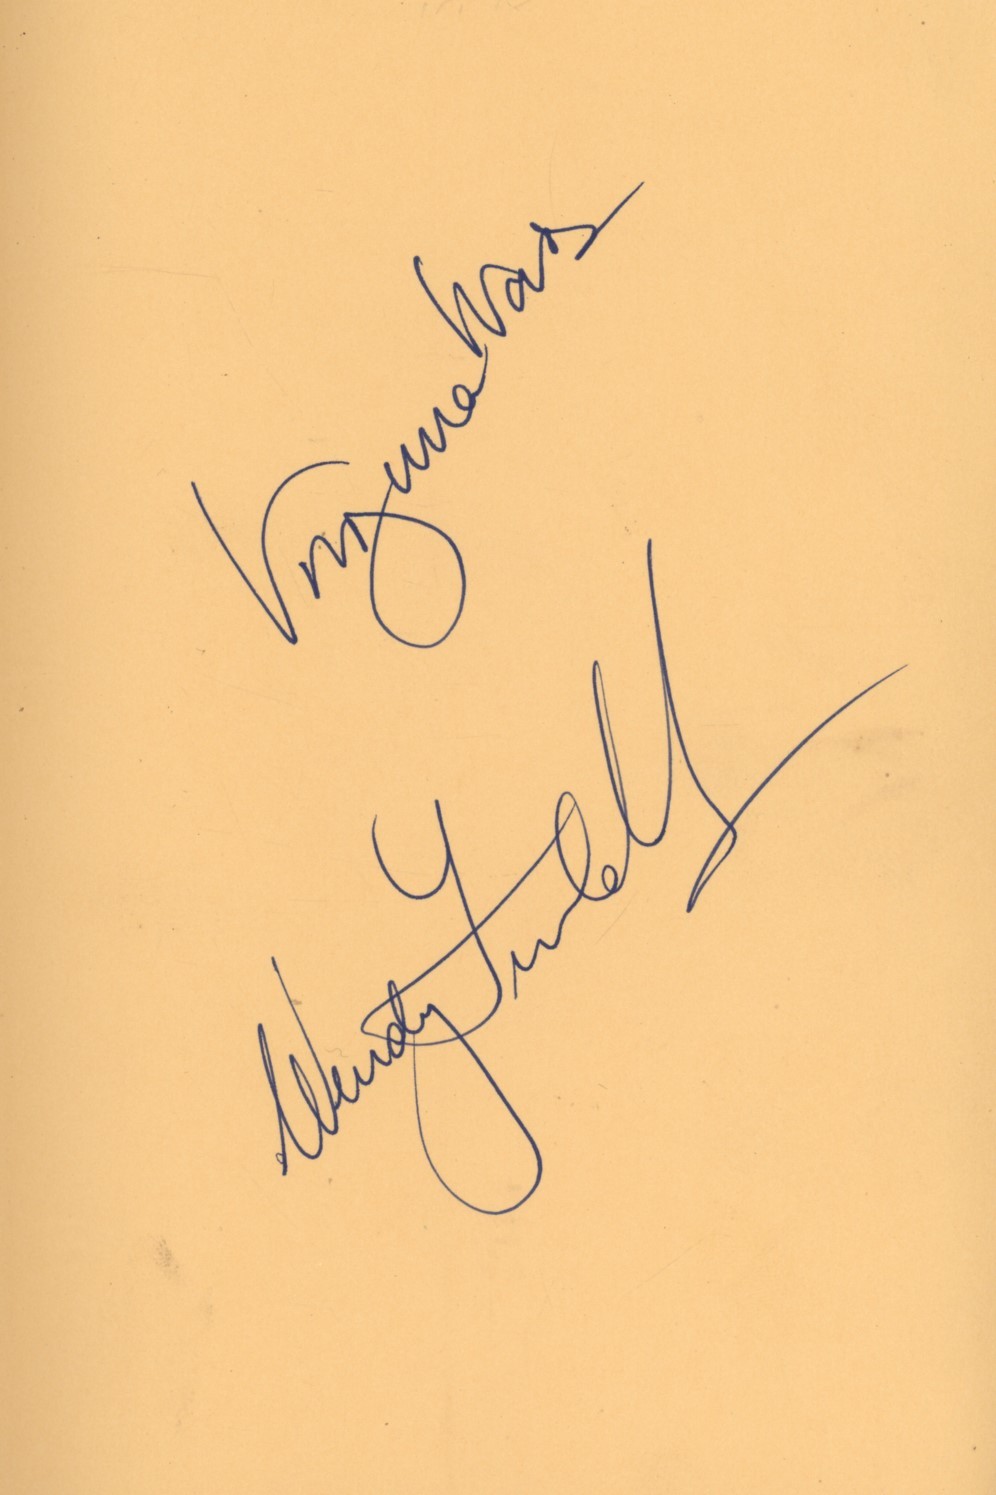 Virginia Wade
Wendy Turnbull